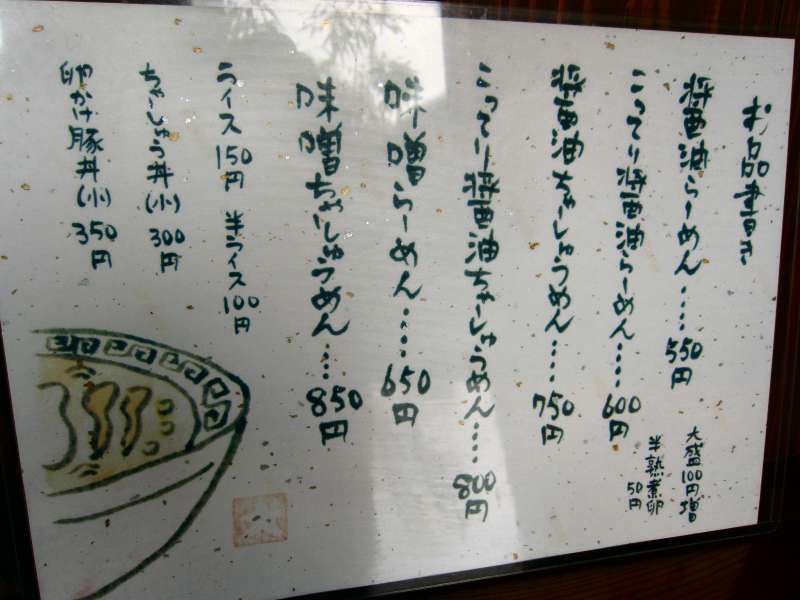 お品書き
醤油らーめん‥‥‥550円
こってり醤油らーめん‥‥‥600円
大盛100円増
半熟煮卵50円
醤油ちゃーしゅうめん‥‥750円
こってり醤油ちゃーしゅうめん‥‥800円
味噌らーめん‥‥‥650円
味噌ちゃーしゅうめん‥‥850円
ライス150円 半ライス100円
ちゃーしゅう丼(小) 300円
卵かけ豚丼(小) 350円